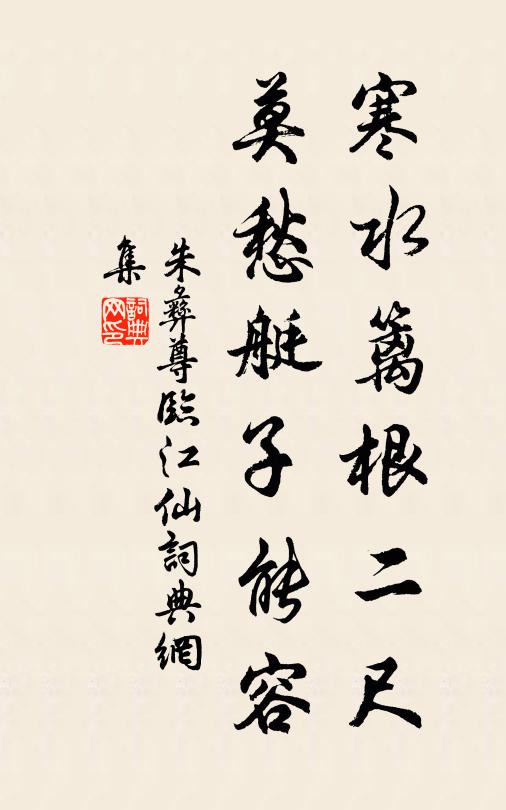 寒水篱根二尺
莫愁艇子能容
朱彝尊臨江仙詞典網
集
詞典
网印